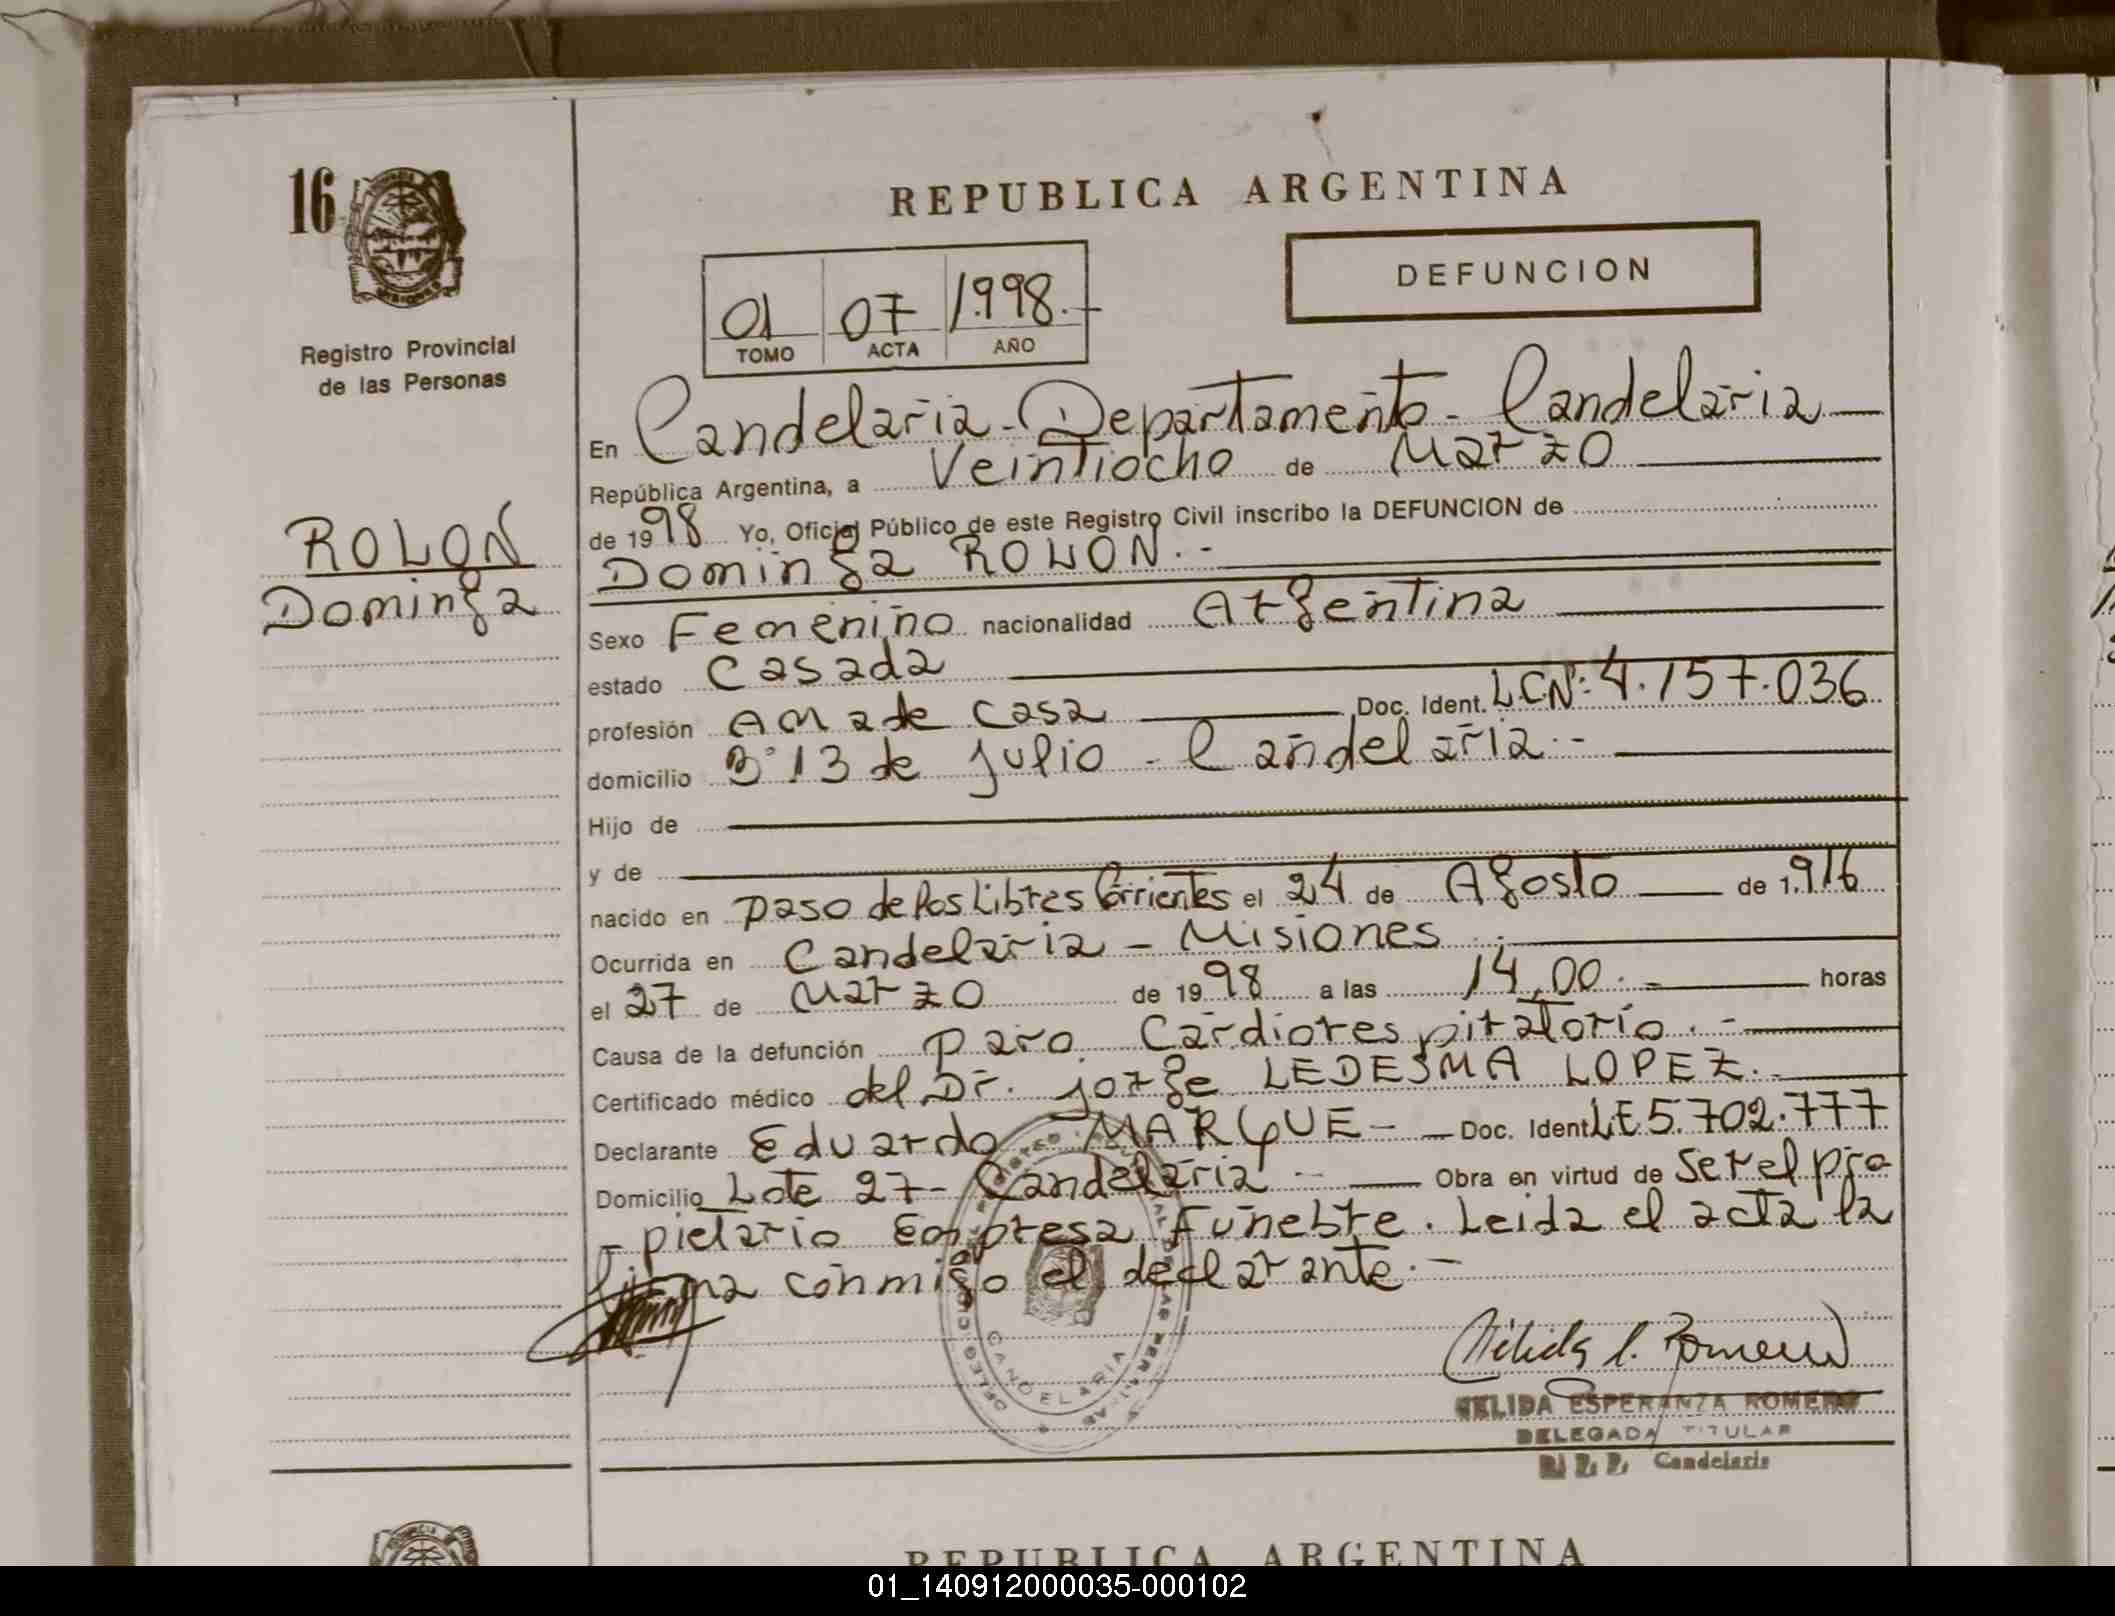 16
MISIONES
Registro Provincial
de las Personas
ROLON
Dominga
REPUBLICA ARGENTINA
DEFUNCION
01 07 1.998.-
TOMO ACTA AÑO
En Candelaria - Departamento - Candelaria
República Argentina, a Veintiocho de Marzo
de 1998 Yo, Oficial Público de este Registro Civil inscribo la DEFUNCION de
Dominga ROLON.-
Sexo Femenino nacionalidad Argentina
estado Casada
profesión Ama de casa Doc. Ident. LCNº: 4.157.036
domicilio Bº 13 de julio - Candelaria.-
Hijo de
y de
nacido en paso de los Libres Corrientes el 24 de Agosto de 1.916
Ocurrida en Candelaria - Misiones.
el 27 de Marzo de 1998 a las 14,00.- horas
Causa de la defunción paro Cardiorespiratorio.-
Certificado médico del Dr. jorge LEDESMA LOPEZ.-
Declarante Eduardo MARQUE - Doc. Ident LE 5.702.777
Domicilio Lote 27 - Candelaria - Obra en virtud de Ser el pro-
- pietario Empresa Funebre. Leida el acta la
firma conmigo el declarante.-
CANDELARIA
Nélida E. Romero
NELIDA ESPERANZA ROMERO
DELEGADA TITULAR
R. P. P. Candelaria
REPUBLICA ARGENTINA
01_140912000035-000102